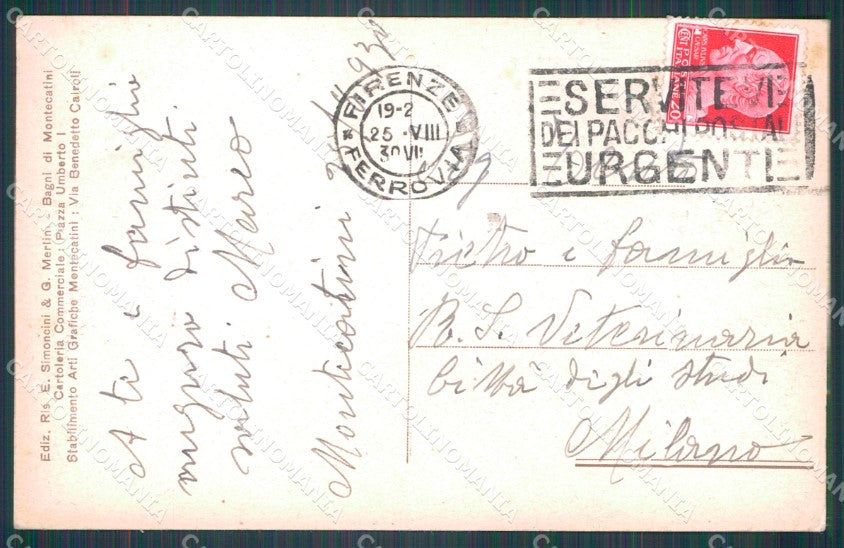 Ediz. Ris. E. Simoncini & G. Merlini - Bagni di Montecatini
Cartoleria Commerciale, Piazza Umberto I
Stabilimento Arti Grafiche Montecatini : Via Benedetto Cairoli
A te e famiglia
auguro distinti
saluti Marco
Montecatini
930
FIRENZE
19-2
25 · VIII
30 VIII
FERROVIA
SERVITEVI
DEI PACCHI POSTALI
URGENTI
POSTE ITALIANE
CENT 20
Pietro e famiglia
R. S. Veterinaria
Città degli studi
Milano
CARTOLINOMANIA